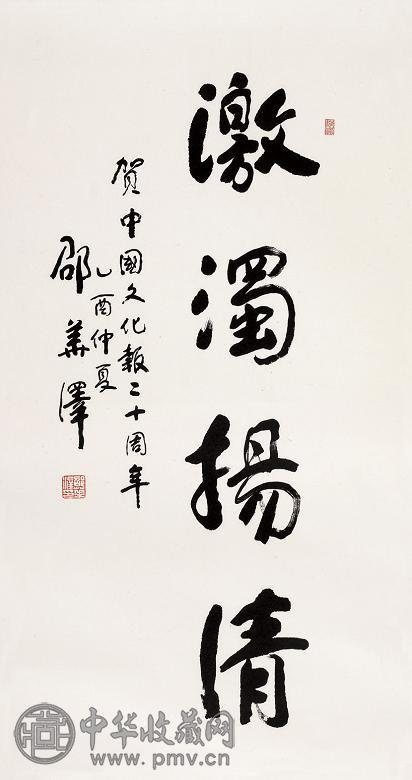 激濁揚清
賀中國文化報二十周年
乙酉仲夏
邵華澤
中华收藏网
www.pmv.cn